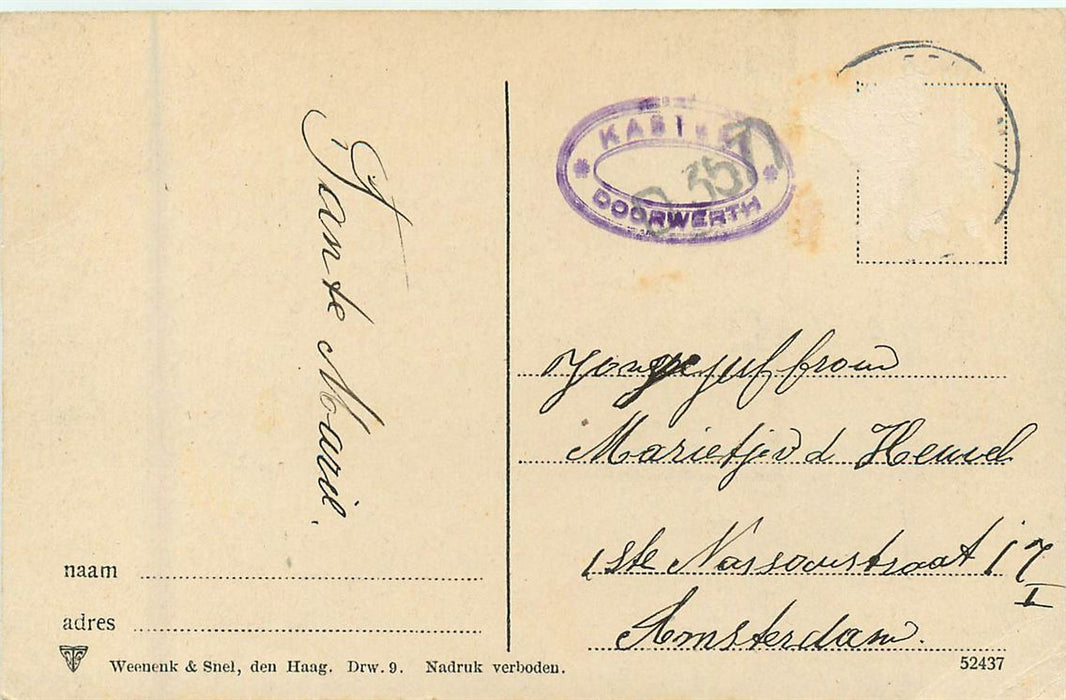 Tante Marie.
KASTEEL
DOORWERTH
3577
Jongejuffrouw
Marietje v d Heuvel
1ste Nassaustraat 17
I
Amsterdam.
naam
adres
Weenenk & Snel, den Haag. Drw. 9. Nadruk verboden.
52437